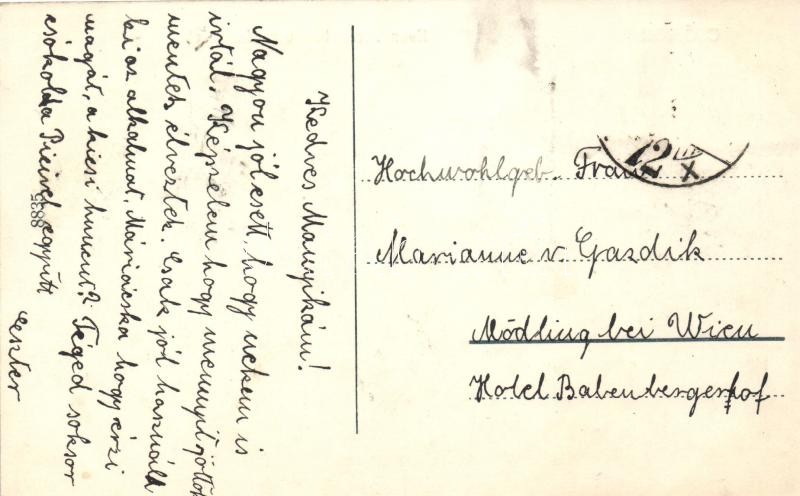 Kedves Mannyikám!
Nagyon jól esett, hogy nekem is
írtál. Képzelem hogy mennyit jöttök
mentek, élveztek. Csak jól használd
ki az alkalmat. Máriácska hogy érzi
magát, a kicsi hunent? Téged soksor
csókol a Pieivel együtt
Eszter
8835
Hochwohlgeb. Frau
Marianne v. Gazdik
Mödling bei Wien
Hotel Babenbergerhof
12
X